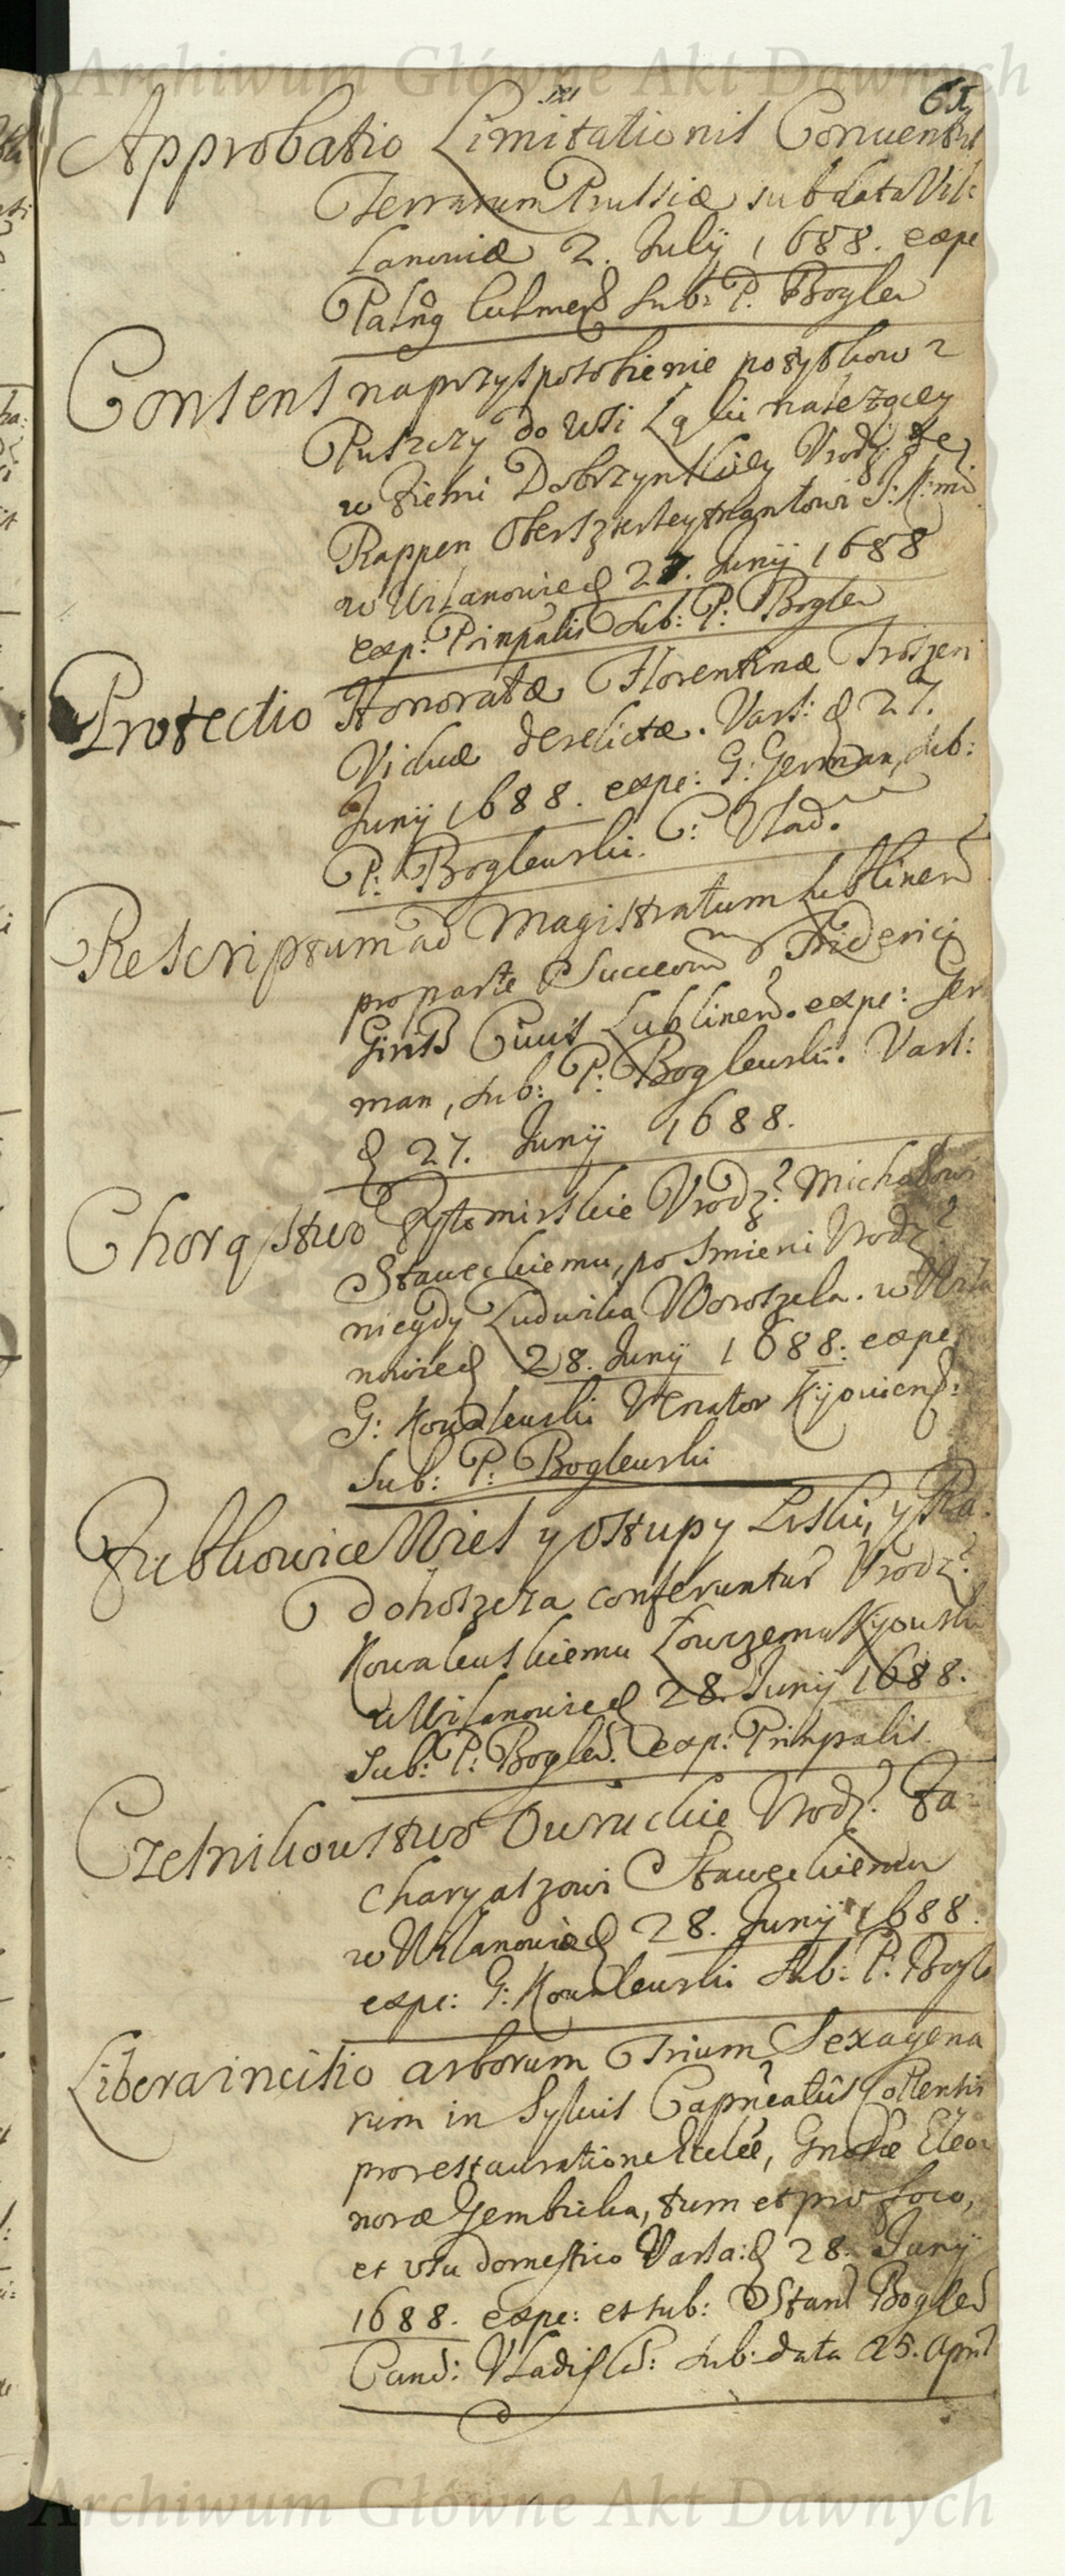 Archiwum Główne Akt Dawnych
65
Approbatio Limitationis Conventus
Terrarum Prussiæ sub data Vil:
lanoviæ 2. July 1688. expe
Palng Culmens sub: P. Bogler
Consens na przysposobienie pożytkow z
Puszczy do wsi Łąki należącey
w Ziemi Dobrzynskiey Vrodz:
Rappen Obersztterleytnantowi J: K: mci
w Wilanowie d 27. Juny 1688
exp: Prinpalis sub: P: Bogler
Protectio Honoratæ Florentinæ Troszeri
Viduæ derelictæ. Vars: d 27.
Juny 1688. expe: G: German, sub:
P: Boglewski. C: Vlad.
Rescriptum ad Magistratum Lublinens
pro parte Succeorum Friderici
Girits Civis Lublinens. expe: Ger
man, sub: P: Boglewski. Vars:
d 27. Juny 1688.
Chorąstwo Żytomirskie Vrodz: Michałowi
Staweckiemu, po smierci Vrodz:
niegdy Ludwika Woroszela. w Wila
nowie d 28. Juny 1688: expe
G: Kowalewski Venator Kijoviens:
Sub: P: Boglewski
Zubkowice Wies y Ostupy Lyski, y Ra
dohoszcza conferuntur Vrodz:
Kowalewskiemu Łowczemu Kijowski
w Wilanowie d 28. Juny 1688.
Sub: P: Bogles. exp: Prinpalis.
Czesnikowstwo Owruckie Vrodz: Za-
charyaszowi Staweckiemu
w Wilanowie d 28. Juny 1688.
expe: G: Kowalewski sub: P: Bogle
Libera incisio arborum Trium Sexagena
rum in Sylvis Capneatus Solensis
pro restauratione Ecclæ, Gnosæ Eleo
noræ Gembicka, tum et pro foco,
et usu domestico Varsa: d 28. Juny
1688. expe: et sub: Stan Bogles
Cand: Vladisla: sub: data 25. April
Archiwum Główne Akt Dawnych